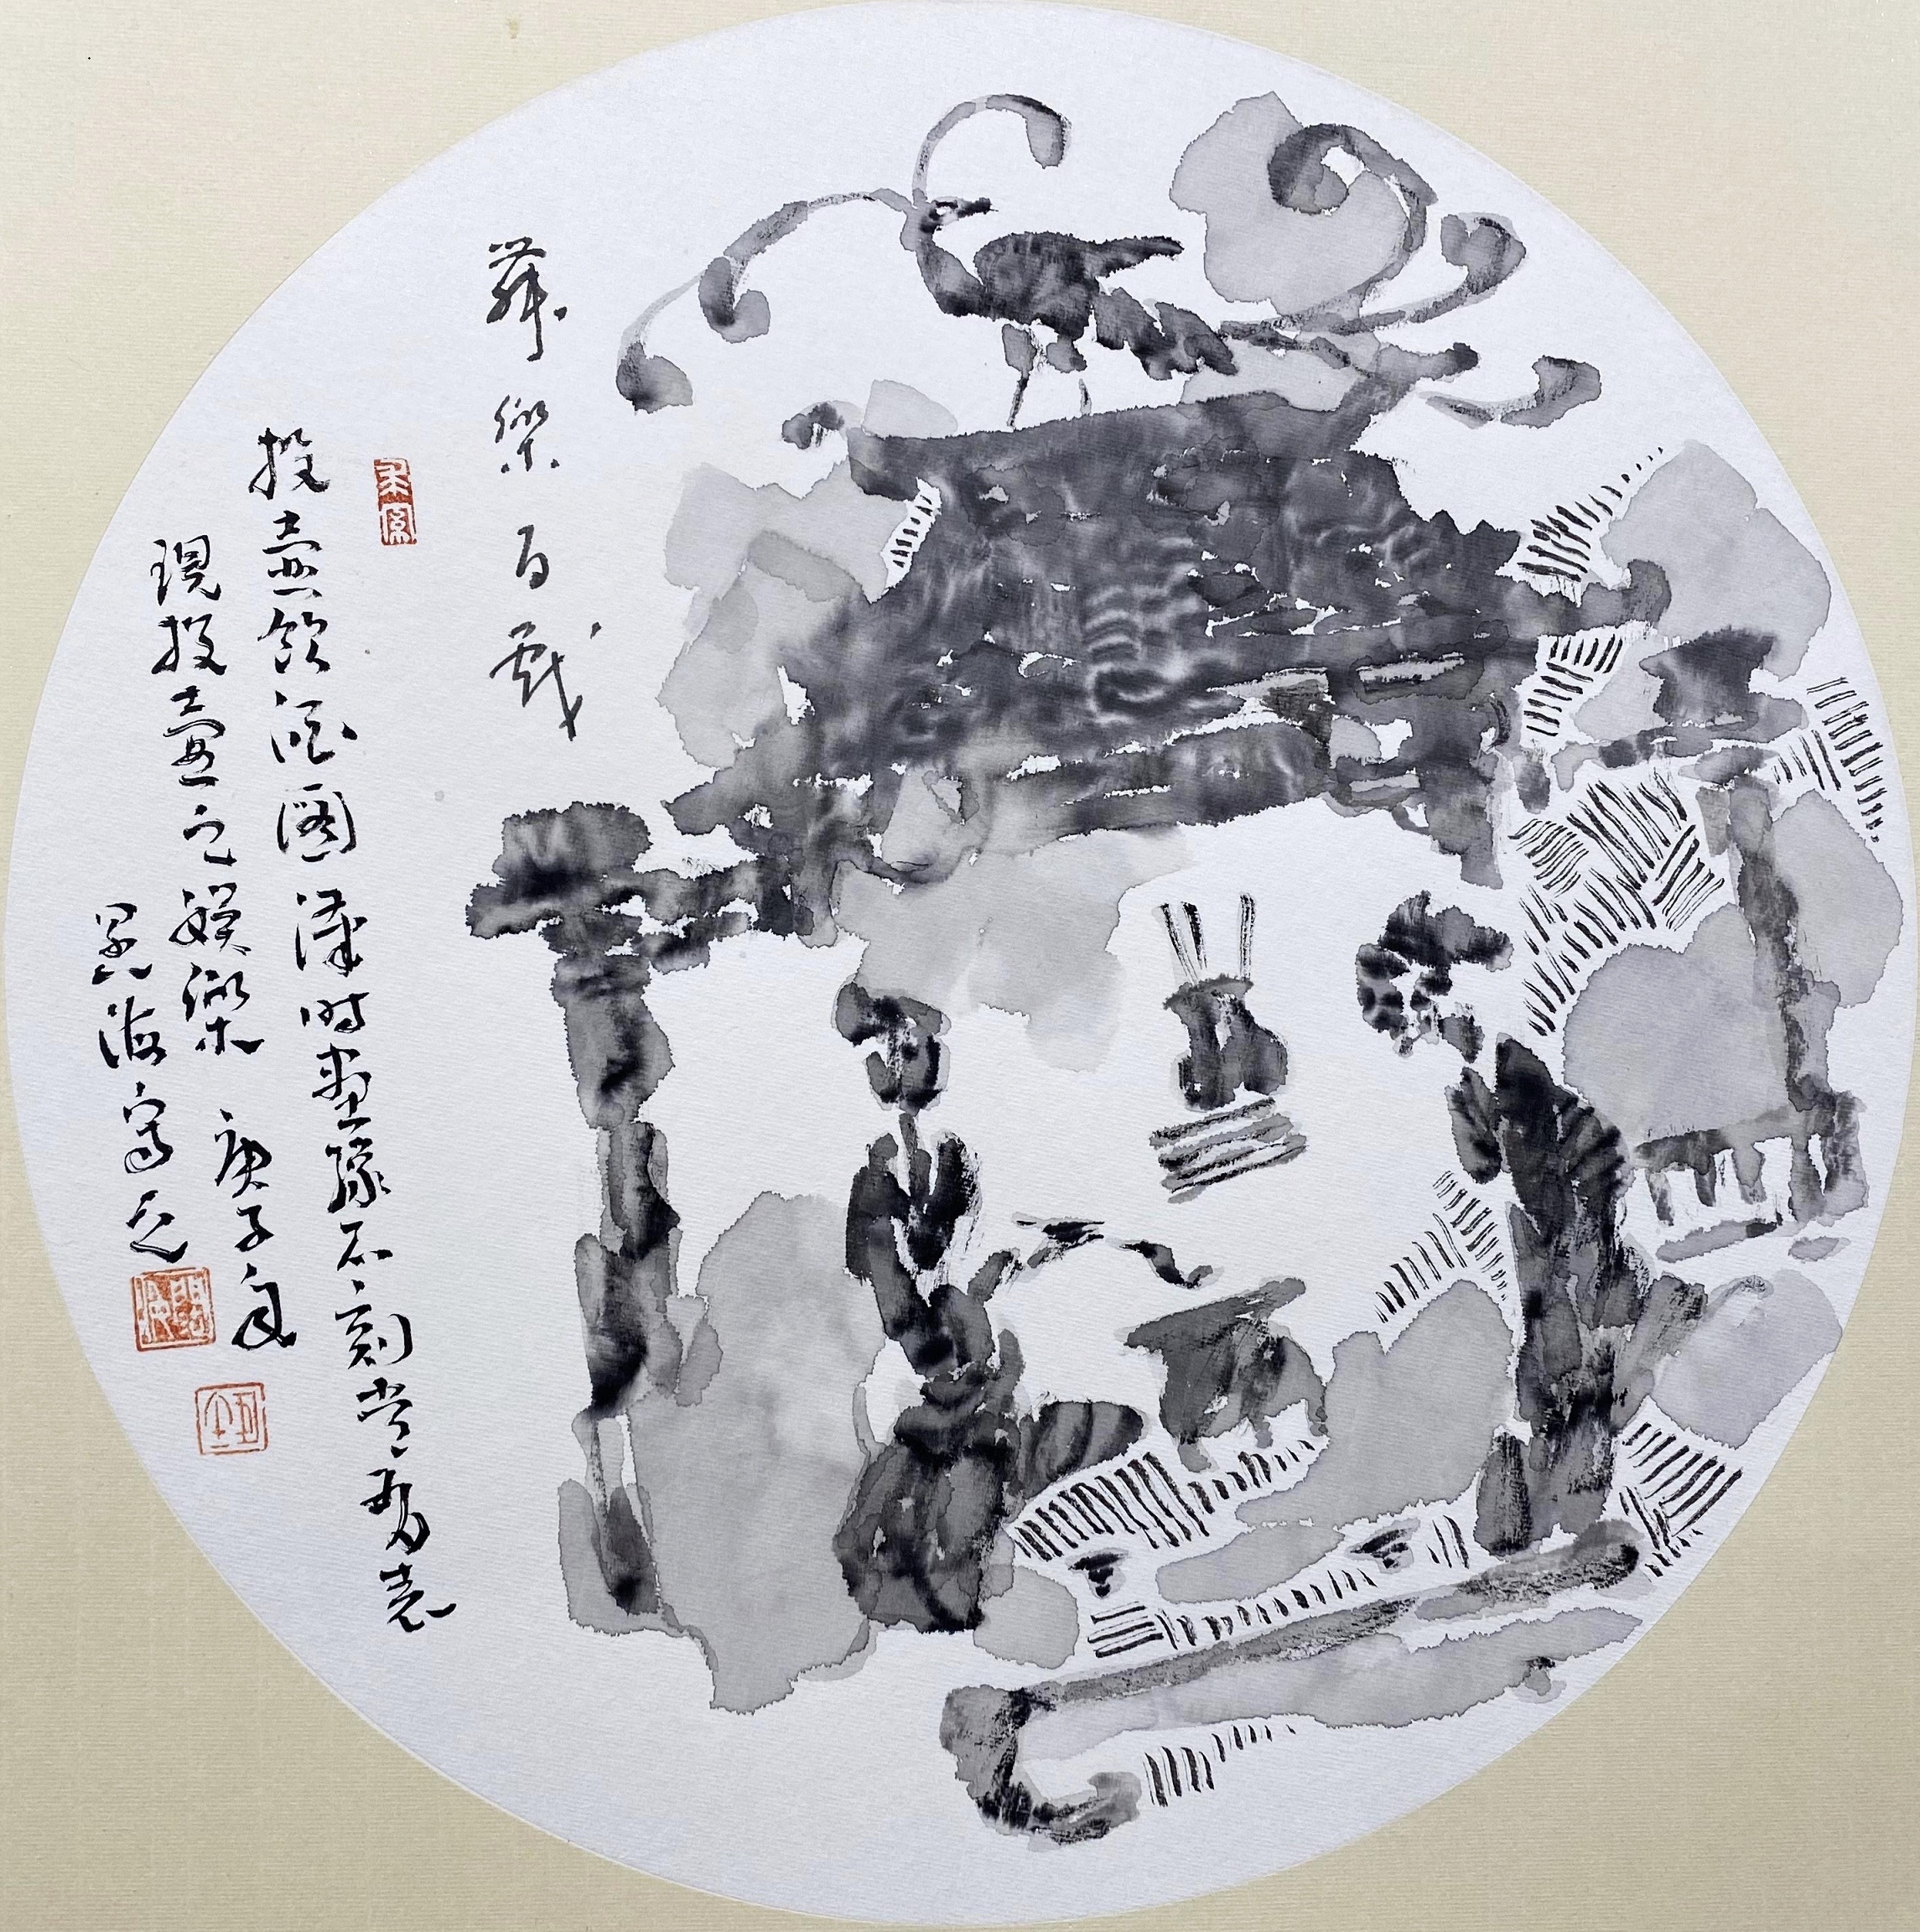 舞樂百戲
投壺飲酒圖漢時畫像石刻常有表
現投壺之娛樂 庚子年
海寫之